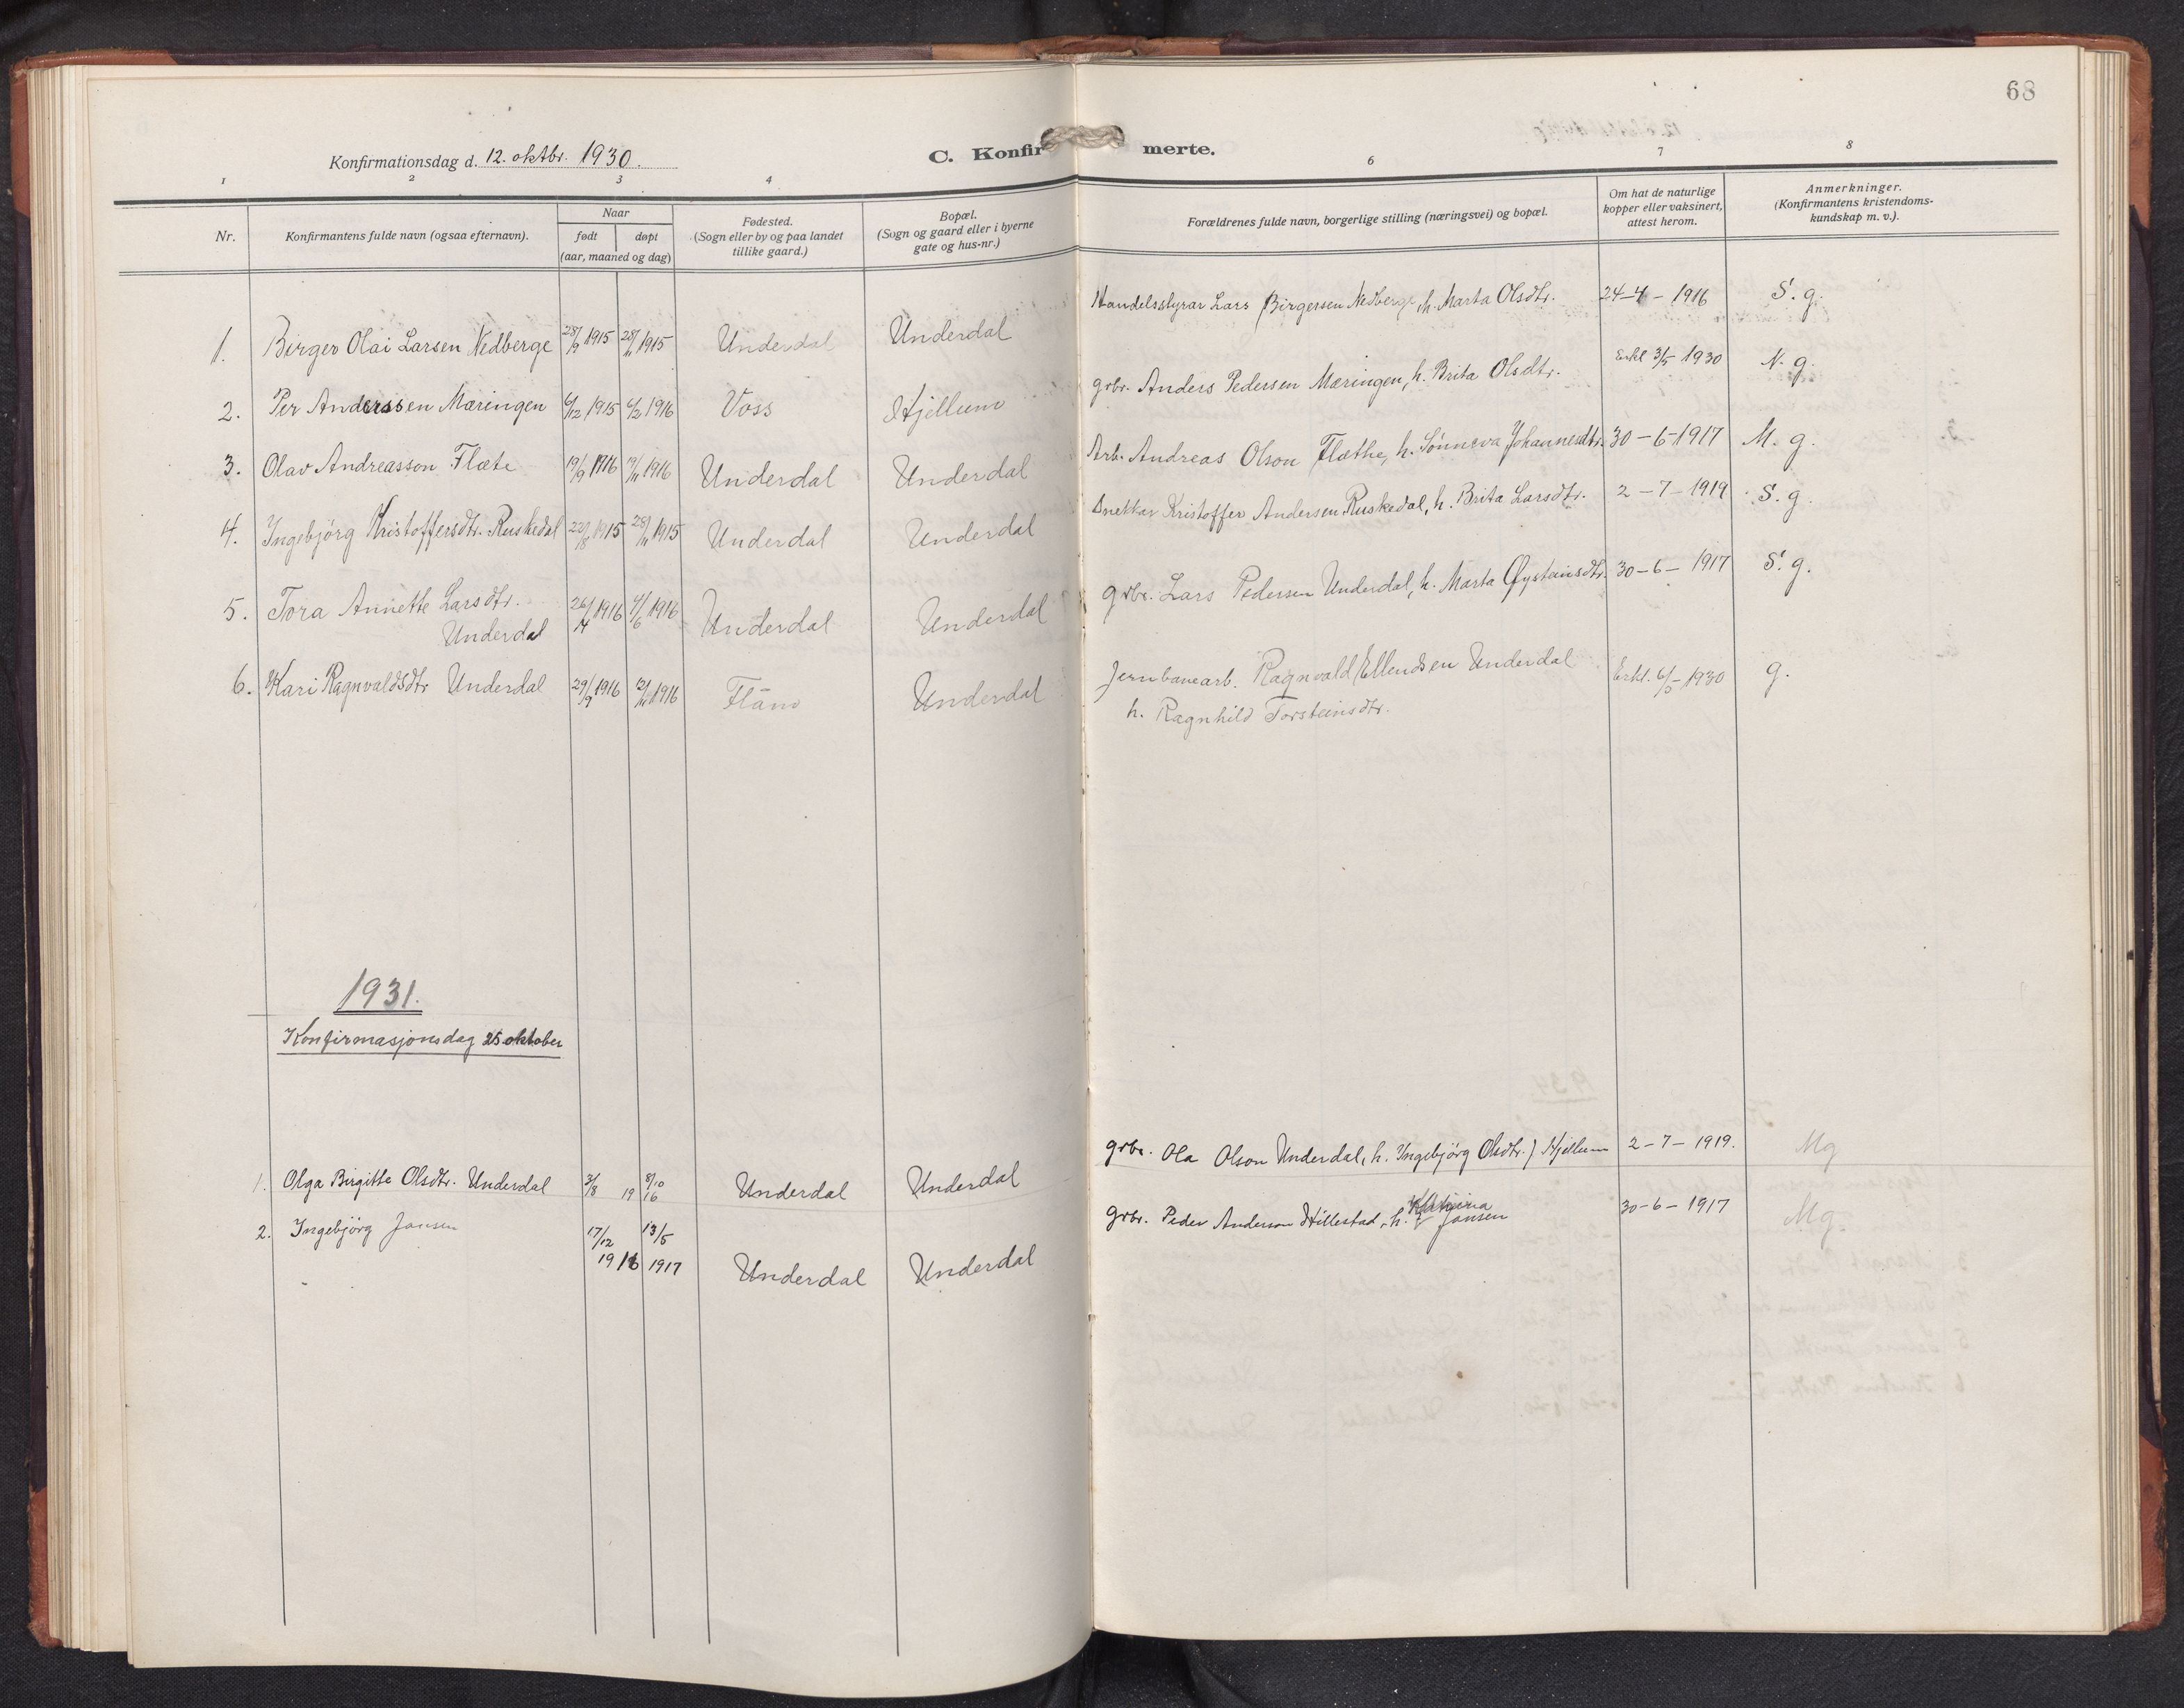 68
Konfirmationsdag d. 12. oktbr. 1930.
C. Konfirmerte.
1 2 3 4 6 7 8
Nr.
Konfirmantens fulde navn (ogsaa efternavn).
Naar
født døpt
(aar, maaned og dag)
Fødested.
(Sogn eller by og paa landet
tillike gaard.)
Bopæl.
(Sogn og gaard eller i byerne
gate og hus-nr.)
Forældrenes fulde navn, borgerlige stilling (næringsvei) og bopæl.
Om hat de naturlige
kopper eller vaksinert,
attest herom.
Anmerkninger.
(Konfirmantens kristendoms-
kundskap m. v.).
1. Birger Olai Larsen Nedberge 28/9 1915 28/11 1915 Underdal Underdal Handelsstyrar Lars Birgersen Nedberge, h. Marta Olsdtr. 24-4-1916 S. g.
2. Per Anderssen Mæringen 6/12 1915 6/2 1916 Voss Hjellum grbr. Anders Pedersen Mæringen, h. Brita Olsdtr. Erkl 3/5 1930 N. g.
3. Olav Andreasson Flæte 19/9 1916 19/11 1916 Underdal Underdal Arb. Andreas Olson Flæthe, h. Sønneva Johannesdtr. 30-6-1917 M. g.
4. Ingebjörg Kristoffersdtr. Ruskedal 22/8 1915 28/11 1915 Underdal Underdal Snekkar Kristoffer Andersen Ruskedal, h. Brita Larsdtr. 2-7-1919 S. g.
5. Tora Annette Larsdtr.
Underdal 26/4 1916 4/6 1916 Underdal Underdal grbr. Lars Pedersen Underdal, h. Marta Øysteinsdtr. 30-6-1917 S. g.
6. Kari Ragnvaldsdtr Underdal 29/9 1916 12/11 1916 Flåm Underdal Jernbanearb. Ragnvald Ellendsen Underdal Erkl. 6/5-1930 g.
h. Ragnhild Torsteinsdtr.
1931.
Konfirmasjonsdag 25 oktober
1. Olga Birgitte Olsdtr. Underdal 3/8 19 8/10 16 Underdal Underdal grbr. Ola Olson Underdal, h. Ingebjörg Olsdtr. Hjellum 2-7-1919. Mg
2. Ingebjörg Jansen 17/12 1916 13/5 1917 Underdal Underdal grbr. Peder Anderson Hillestad, h. Jansen 30-6-1917 Mg.